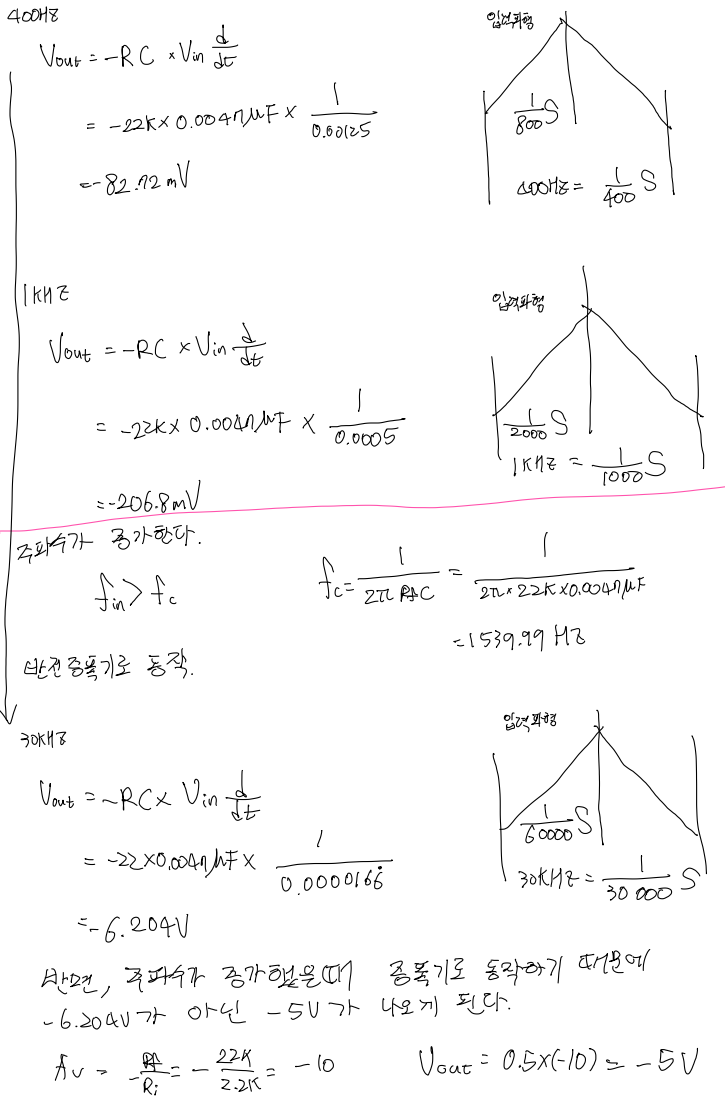 400HZ
Vout = -RC × Vin d/dt
= -22K × 0.0047μF × 1/0.00125
= -82.72mV
입력파형
1/800 S
400HZ = 1/400 S
1KHZ
Vout = -RC × Vin d/dt
= -22K × 0.0047μF × 1/0.0005
= -206.8mV
입력파형
1/2000 S
1KHZ = 1/1000 S
주파수가 증가한다.
fin > fc
반전증폭기로 동작.
fc = 1/2πRfC = 1/2π×22K×0.0047μF
= 1539.99 HZ
30KHZ
Vout = -RC × Vin d/dt
= -22×0.0047μF × 1/0.0000166
= -6.204V
입력파형
1/60000 S
30KHZ = 1/30000 S
반면, 주파수가 증가했을때 증폭기로 동작하기 때문에
-6.204V가 아닌 -5V가 나오게 된다.
Av = -Rf/Ri = -22K/2.2K = -10
Vout = 0.5×(-10) = -5V